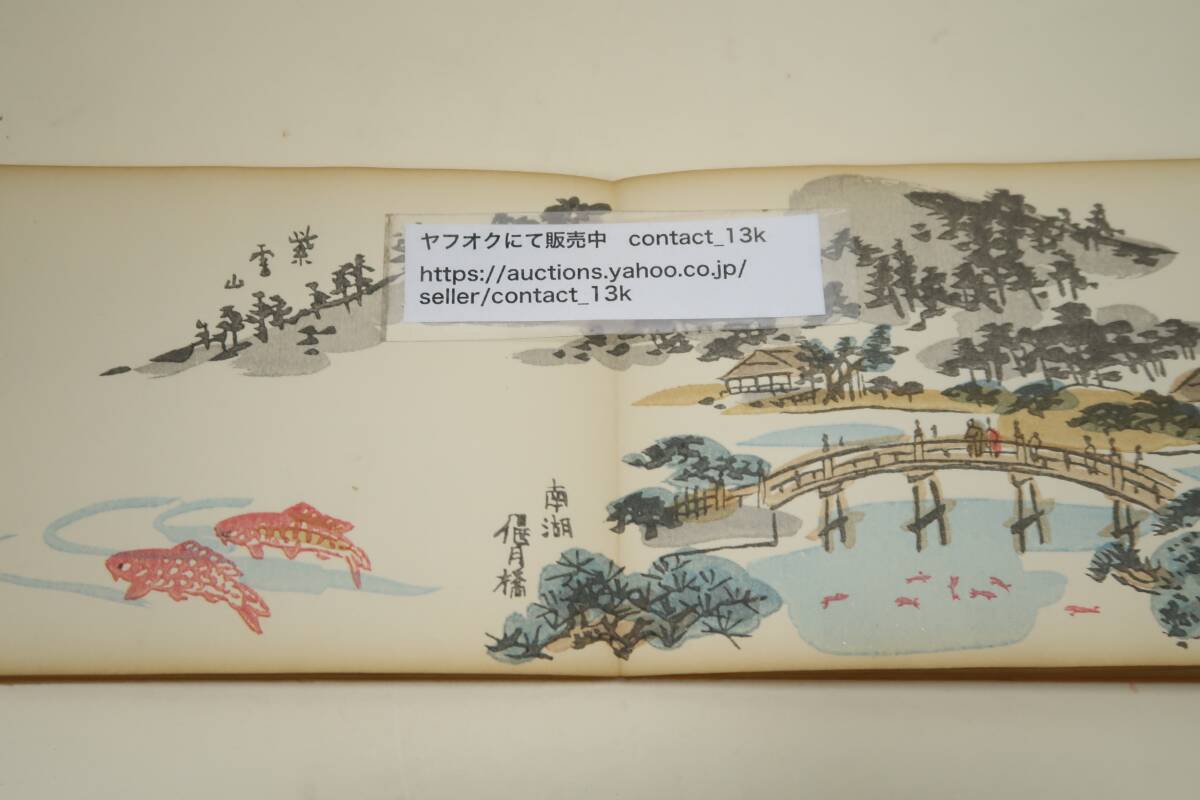 ヤフオクにて販売中　contact_13k
https://auctions.yahoo.co.jp/
seller/contact_13k
紫雲山
南湖
偃月橋